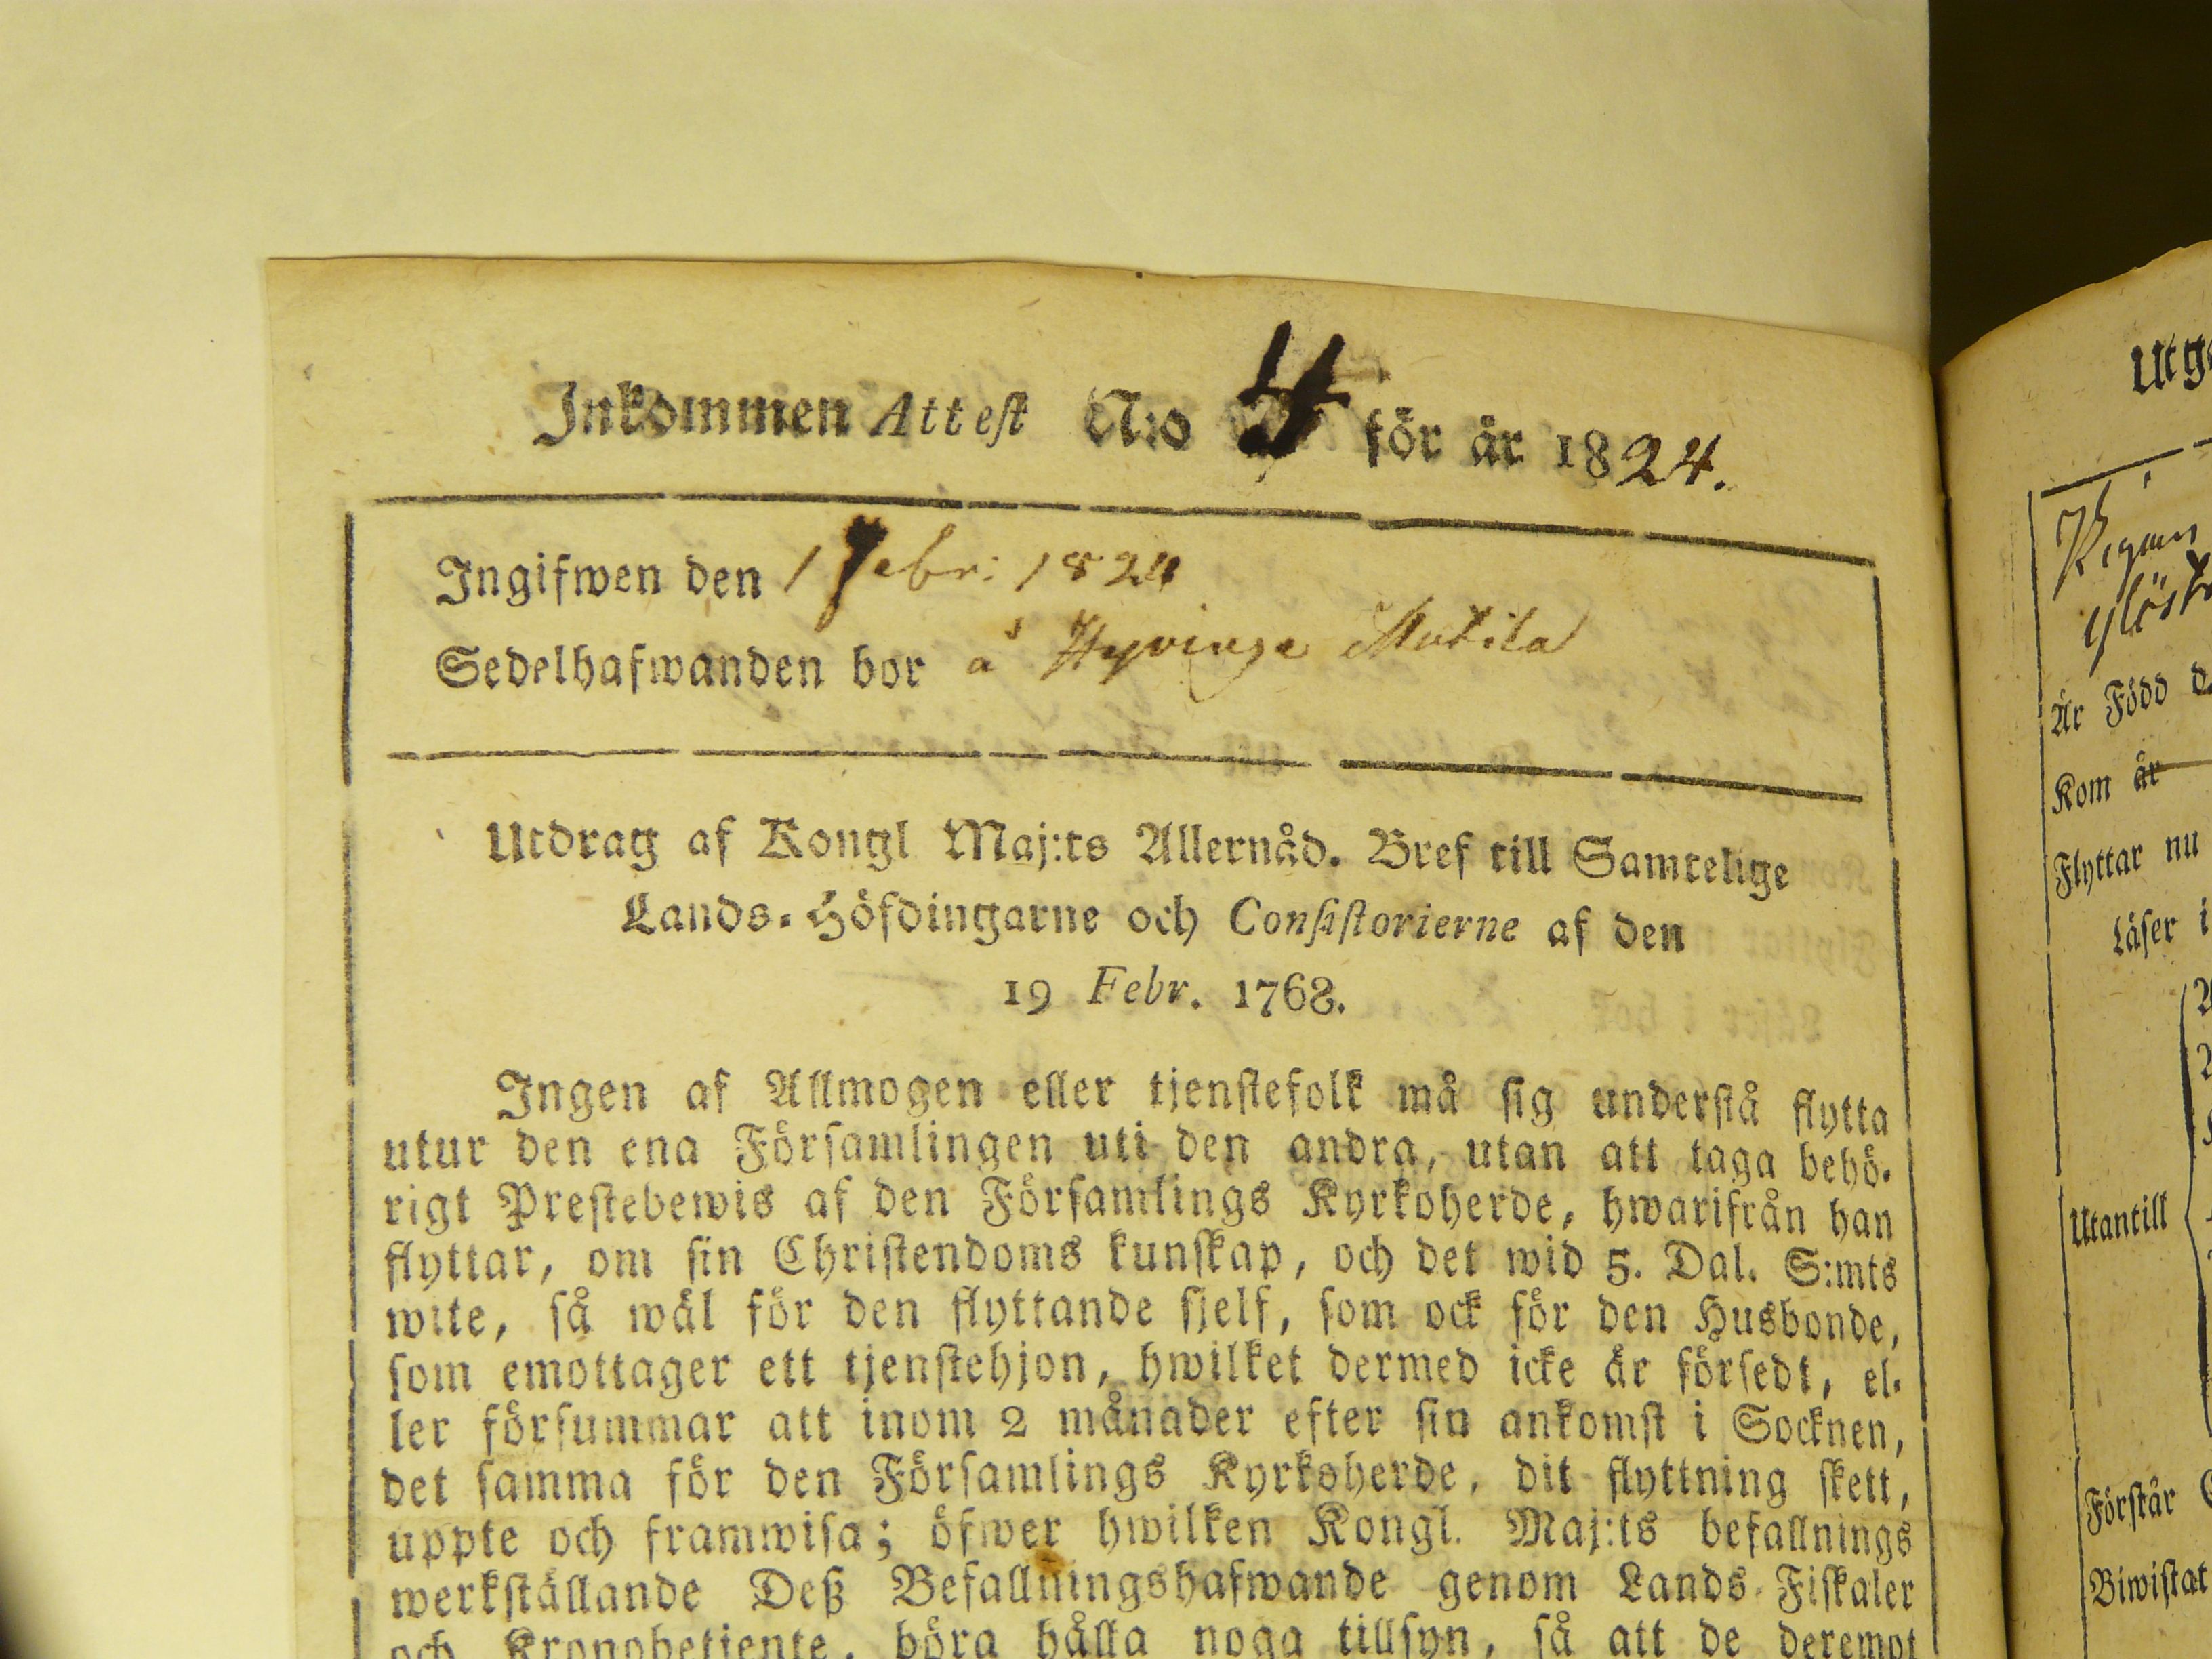 Inkommen Attest N:o 4 för år 1824.
Ingifwen den 1 Febr: 1824
Sedelhafwanden bor å Hyvinge Mutila
Utdrag af Kongl Maj:ts Allernåd. Bref till Samtelige
Lands-Höfdingarne och Consistorierne af den
19 Febr. 1768.
Ingen af Allmogen eller tjenstefolk må sig understå flytta
utur den ena Församlingen uti den andra, utan att taga behö-
rigt Prestebewis af den Församlings Kyrkoherde, hwarifrån han
flyttar, om sin Christendoms kunskap, och det wid 5. Dal. S:mts
wite, så wäl för den flyttande sjelf, som ock för den Husbonde,
som emottager ett tjenstehjon, hwilket dermed icke är försedt, el-
ler försummar att inom 2 månader efter sin ankomst i Socknen,
det samma för den Församlings Kyrkoherde, dit flyttning skett,
uppte och framwisa; öfwer hwilken Kongl. Maj:ts befallnings
werkställande Deß Befallningshafwande genom Lands-Fiskaler
och Kronobetjente, böra hålla noga tillsyn, så att de deremot
Utg
Pigan
Är Född d
Kom år
Flyttar nu
Läser i
Utantill
Förstår
Biwistat